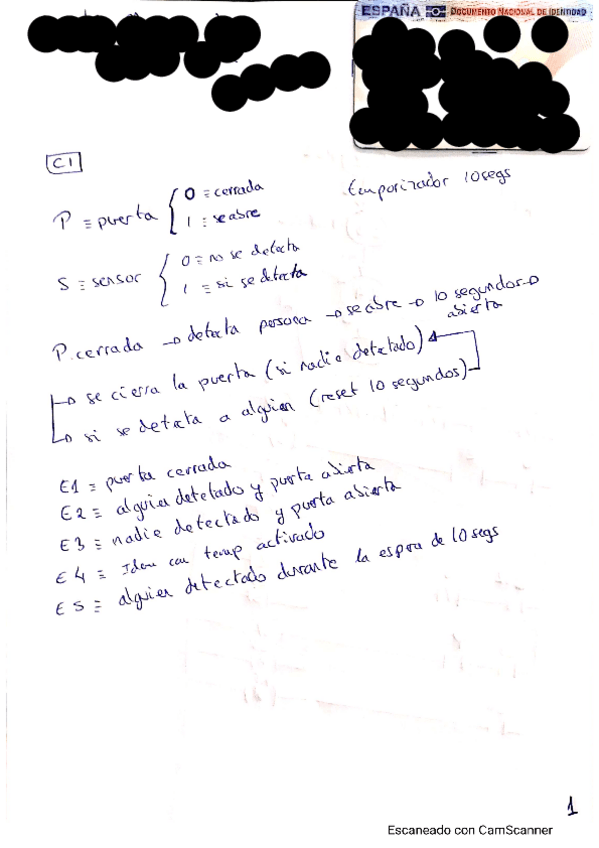 ESPAÑA DOCUMENTO NACIONAL DE IDENTIDAD
C1
temporizador 10segs
P ≡ puerta { 0 ≡ cerrada
1 ≡ se abre
S ≡ sensor { 0 ≡ no se detecta
1 ≡ si se detecta
P. cerrada → detecta persona → se abre → 10 segundos →
abierta
↳ se cierra la puerta (si nadie detectado)
↳ si se detecta a alguien (reset 10 segundos)
E1 ≡ puerta cerrada
E2 ≡ alguien detetado y puerta abierta
E3 ≡ nadie detectado y puerta abierta
E4 ≡ Idem con temp activado
E5 ≡ alguien detectado durante la espera de 10 segs
1
Escaneado con CamScanner